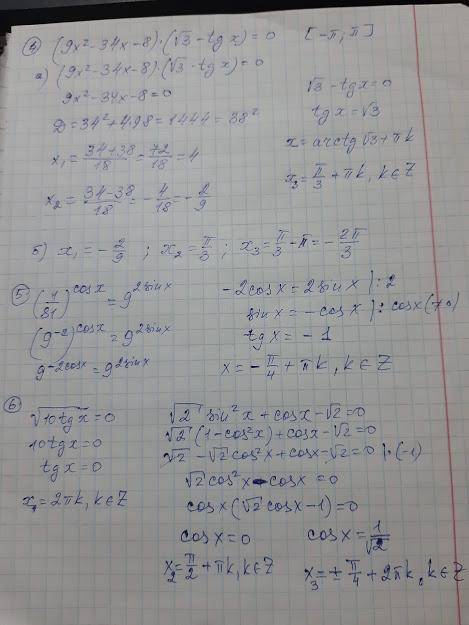 ④ (9x²-34x-8)·(√3-tgx)=0 [-π; π]
a) (9x²-34x-8)·(√3-tgx)=0
9x²-34x-8=0
D=34²+4·98=1444=38²
x₁=(34+38)/18=72/18=4
x₂=(34-38)/18=-4/18=-2/9
√3-tgx=0
tgx=√3
x=arctg√3+πk
x₃=π/3+πk, k∈Z
б) x₁=-2/9; x₂=π/3; x₃=π/3-π=-2π/3
⑤ (1/81)^cosx=9^2sinx
(9⁻²)^cosx=9^2sinx
9^-2cosx=9^2sinx
-2cosx=2sinx |:2
sinx=-cosx |:cosx(≠0)
tgx=-1
x=-π/4+πk, k∈Z
⑥
√(10tgx)=0
10tgx=0
tgx=0
x₁=2πk, k∈Z
√2 sin²x+cosx-√2=0
√2(1-cos²x)+cosx-√2=0
√2-√2cos²x+cosx-√2=0 |·(-1)
√2cos²x-cosx=0
cosx(√2cosx-1)=0
cosx=0
x₂=π/2+πk, k∈Z
cosx=1/√2
x₃=±π/4+2πk, k∈Z